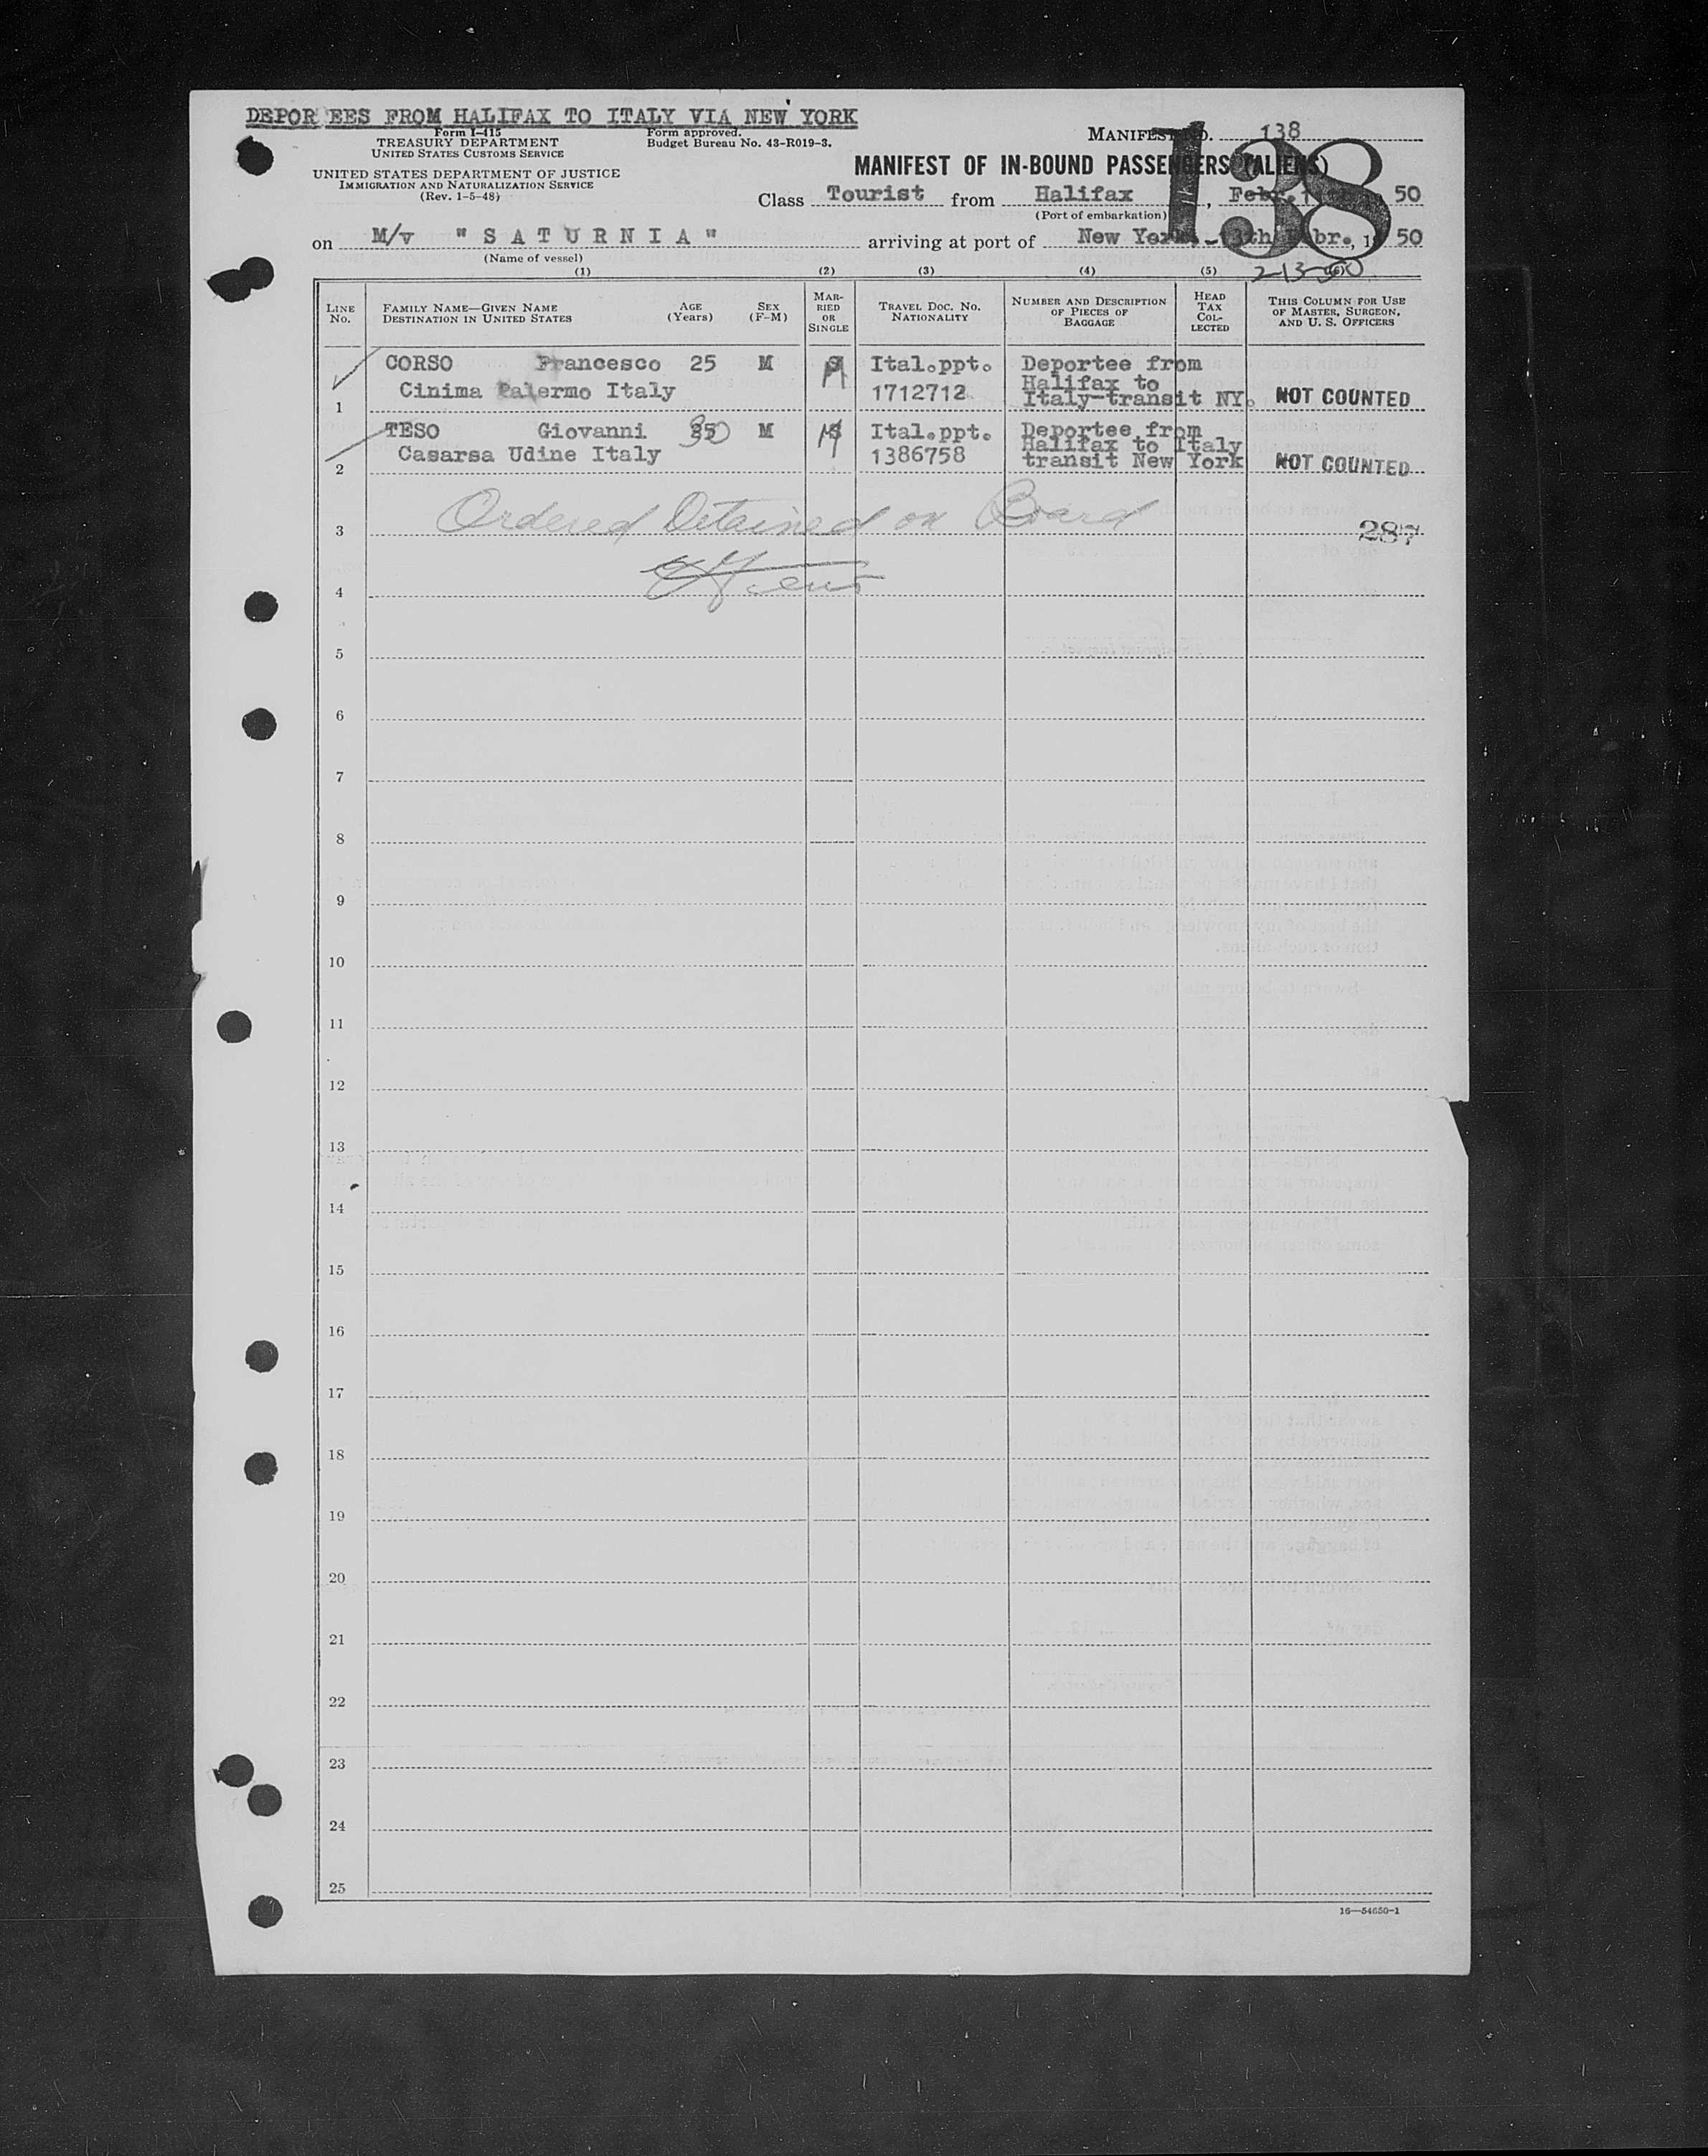 DEPOR EES FROM HALIFAX TO ITALY VIA NEW YORK
Form I-415
TREASURY DEPARTMENT
UNITED STATES CUSTOMS SERVICE
UNITED STATES DEPARTMENT OF JUSTICE
IMMIGRATION AND NATURALIZATION SERVICE
(Rev. 1-5-48)
Form approved.
Budget Bureau No. 43-R019-3.
MANIFEST NO. 138
138
MANIFEST OF IN-BOUND PASSENGERS (ALIENS)
Class Tourist from Halifax, Febr. 50
(Port of embarkation)
on M/v "SATURNIA" arriving at port of New York, 13th Febr., 19 50
(Name of vessel)
2-13-50
(1) (2) (3) (4) (5) (6)
LINE No.
FAMILY NAME—GIVEN NAME
DESTINATION IN UNITED STATES
AGE (Years)
SEX (F-M)
MARRIED OR SINGLE
TRAVEL DOC. NO.
NATIONALITY
NUMBER AND DESCRIPTION OF PIECES OF BAGGAGE
HEAD TAX COLLECTED
THIS COLUMN FOR USE OF MASTER, SURGEON, AND U. S. OFFICERS
CORSO Francesco 25 M S M Ital.ppt. Deportee from
Cinima Palermo Italy 1712712 Halifax to
1 Italy-transit NY. NOT COUNTED
TESO Giovanni 30 M S M Ital.ppt. Deportee from
Casarsa Udine Italy 1386758 Halifax to Italy
2 transit New York NOT COUNTED
3 Ordered Detained on Board 287
4
5
6
7
8
9
10
11
12
13
14
15
16
17
18
19
20
21
22
23
24
25
16—54650-1